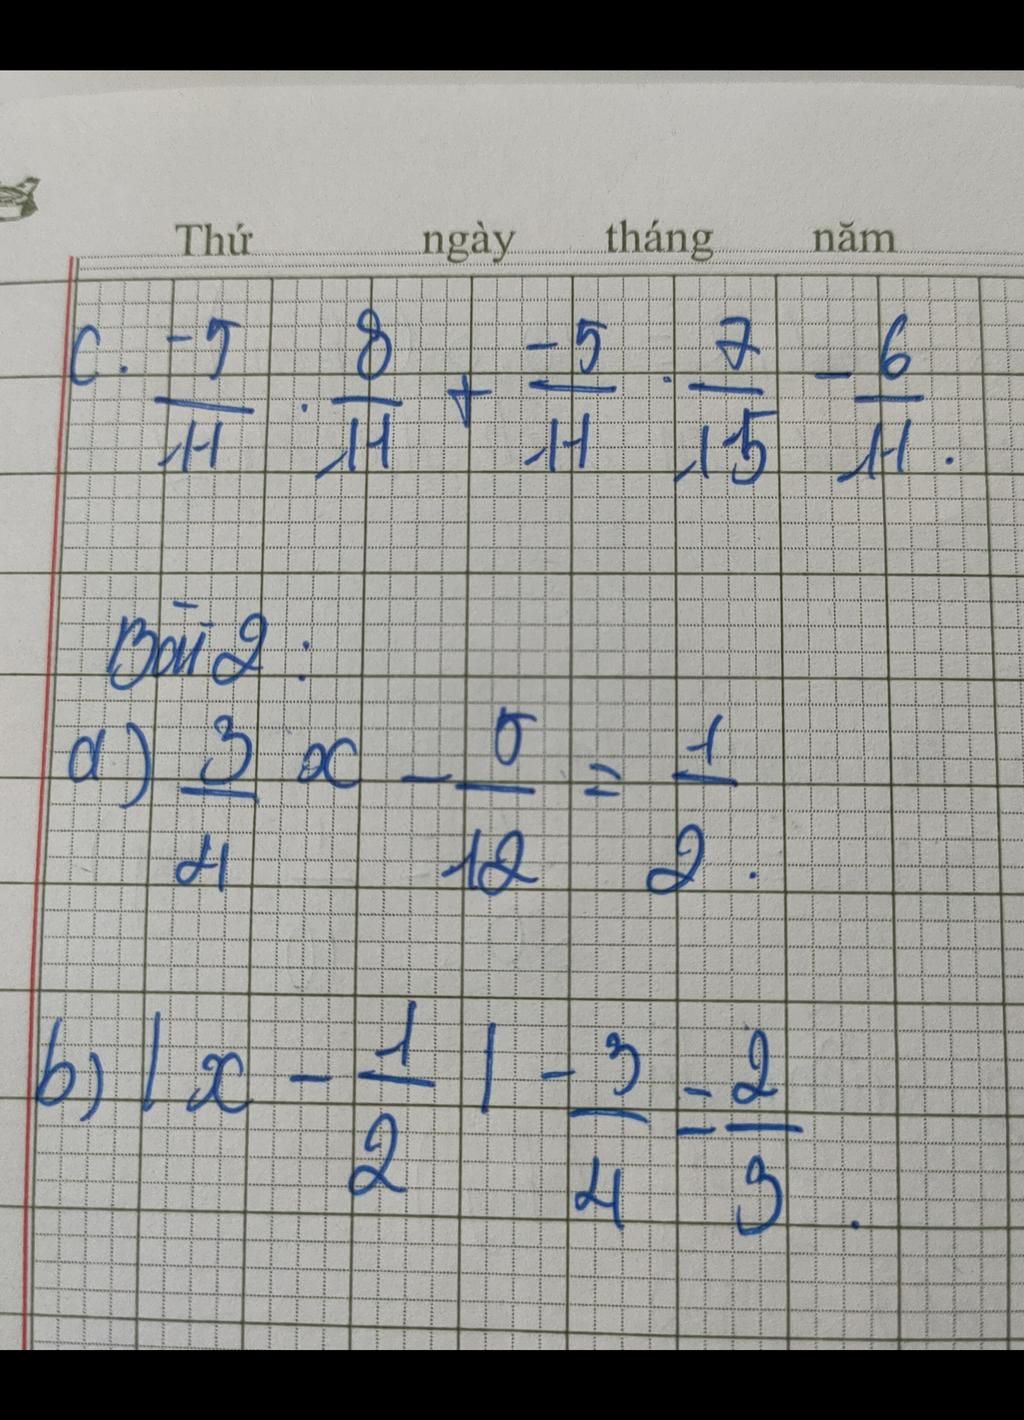 Thứ ngày tháng năm
c. -5/11 . 8/11 + -5/11 . 7/15 - 6/11.
Bài 2:
a) 3/4 x - 5/12 = 1/2.
b) |x - 1/2| - 3/4 = 2/3.